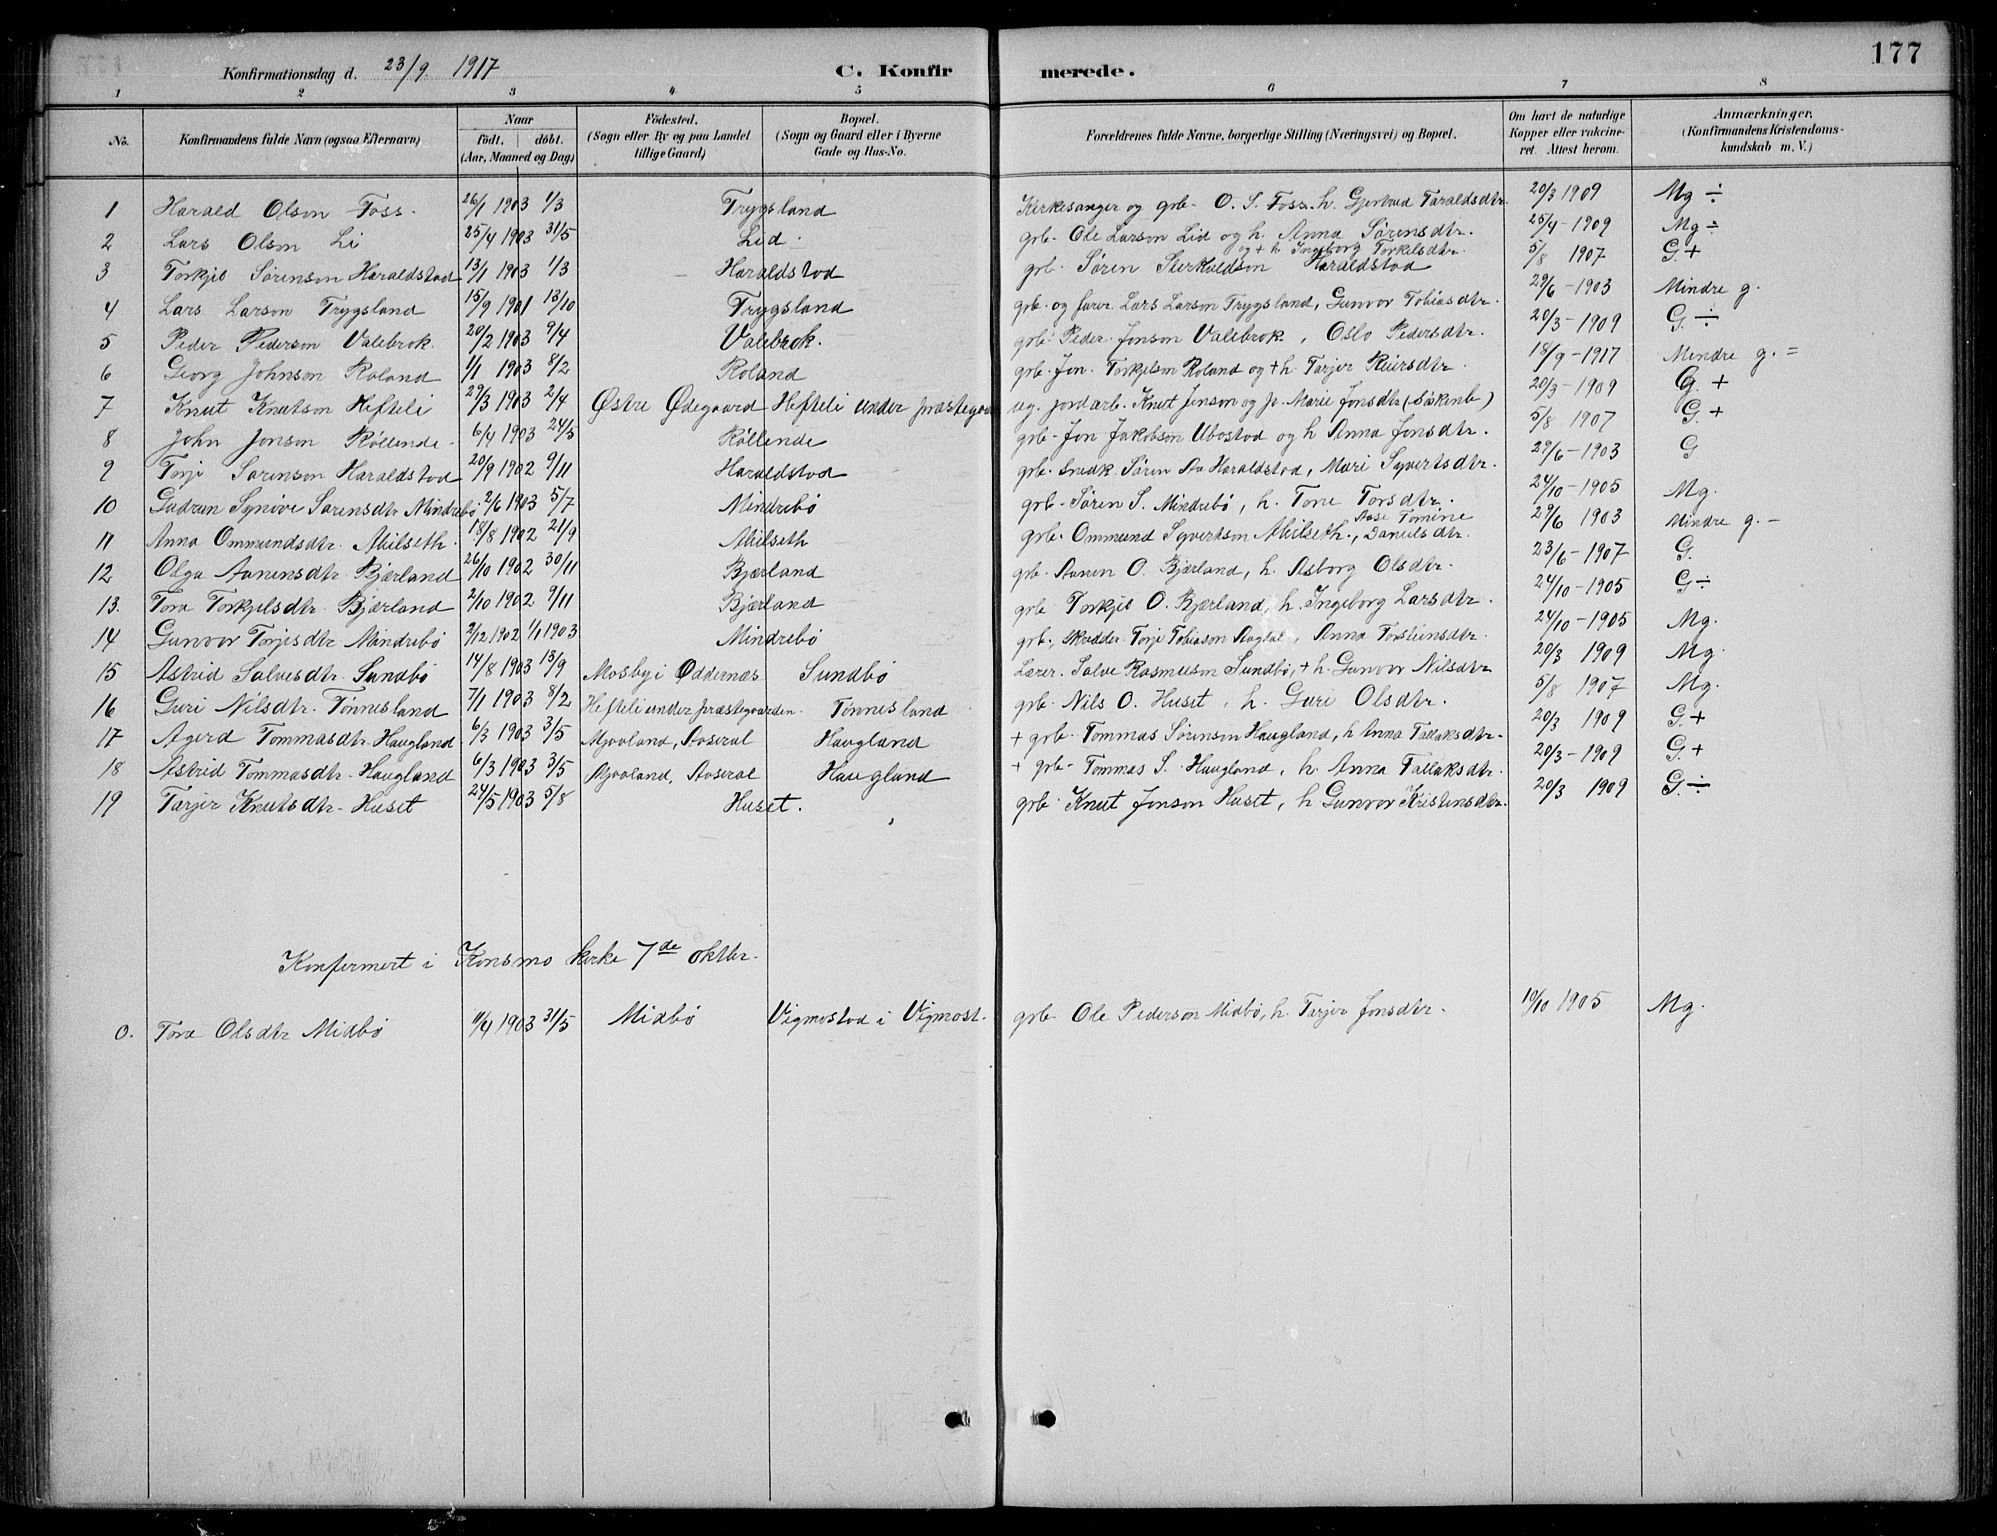 177
Konfirmationsdag d. 23/9 1917 C. Konfirmerede.
1 2 3 4 5 6 7 8
No. Konfirmandens fulde Navn (ogsaa Efternavn) Naar födt. döbt. (Aar, Maaned og Dag) Födested. (Sogn eller By og paa Landet tillige Gaard) Bopæl. (Sogn og Gaard eller i Byerne Gade og Hus-No. Forældrenes fulde Navne, borgerlige Stilling (Næringsvei) og Bopæl. Om havt de naturlige Kopper eller vakcineret. Attest herom. Anmærkninger. (Konfirmandens Kristendomskundskab m. V.)
1 Harald Olson Foss. 26/1 1903 1/3 Trygsland Kirkesanger og grb. O. S. Foss. h. Gjertrud Taraldsdtr. 20/3 1909 Mg ÷
2 Lars Olson Li 25/4 1903 31/5 Lid. grb. Ole Larson Lid og h. Anna Sørensdtr. 25/4 - 1909 Mg ÷
3 Torkjel Sørenson Haraldstad 13/1 1903 1/3 Haraldstad grb. Søren Haraldstad og + h. Ingeborg Torkelsdtr. 5/8 1907 G. +
4 Lars Larson Trygsland 15/9 1901 13/10 Trygsland grb. og fører Lars Larson Trygsland, Gunvor Tobiasdtr. 29/6 - 1903 Mindre g.
5 Peder Pederson Valebrok. 20/2 1903 9/4 Valebrok. grb. Peder Jonson Valebrok, Oslo Pedersdtr. 20/3 - 1909 G. ÷
6 Georg Johnson Roland 1/1 1903 8/2 Roland grb. Jon Torkjelson Roland og + h. Tarjer Reiersdtr. 18/9 - 1917 Mindre g. =
7 Knut Knutson Hefteli 29/3 1903 2/4 Østre Ødegaard Hefteli under præstega ug. jordarb. Knut Jenson og p. Marie Jonsdtr 20/3 - 1909 G. +
8 John Jonson Røllende. 6/4 1903 24/5 Røllende grb. Jon Jakobson Ubostad og h. Anna Jonsdtr. 5/8 1907 G. +
9 Torje Sørenson Haraldstad 20/9 1902 9/11 Haraldstad grb. Søren Aa Haraldstad, Mari Syvertsdtr. 29/6 - 1903 G
10 Gudrun Synøve Sørensdtr Mindrebø 2/6 1903 5/7 Mindrebø grb. Søren S. Mindrebø, h. Tone Torsdtr. 24/10 - 1905 Mg.
11 Anna Ommundsdtr. Mielseth. 18/8 1902 21/9 Mielseth grb. Ommund Syvertson Mielseth, Aase Tomine Danielsdtr. 29/6 1903 Mindre g. -
12 Olga Aanensdtr. Bjærland 26/10 1902 30/11 Bjærland grb. Aanen O. Bjærland, h. Asborg Olsdtr. 23/6 - 1907 G.
13. Tora Torkjelsdtr. Bjærland 2/10 1902 9/11 Bjærland grb. Torkjel O. Bjærland, h. Ingeborg Larsdtr. 24/10 - 1905 G ÷
14 Gunvor Torjesdtr Mindrebø 2/12 1902 1/1 1903 Mindrebø grb., skrædder Torje Tobiason, Anna Torstensdtr. 24/10 - 1905 Mg.
15 Astrid Salvesdtr. Sundbø 14/8 1903 13/9 Mosby i Oddernes Sundbø Lærer. Salve Rasmusson Sundbø, + h. Gunvor Nilsdtr 20/3 1909 Mg.
16 Guri Nilsdtr. Tønnesland 7/1 1903 8/2 Hefteli under præstegaarden. Tønnesland grb. Nils O. Huset, h. Guri Olsdtr. 5/8 1907 Mg.
17 Agerd Tommasdtr. Haugland 6/3 1903 3/5 Mjaaland, Aaseral Haugland + grb. Tommas Sørenson Haugland, h Anna Tallaksdtr. 20/3 1909 G. +
18 Astrid Tommasdtr. Haugland 6/3 1903 3/5 Mjaaland, Aaseral Haugland + grb. Tommas S. Haugland, h. Anna Tallaksdtr. 20/3 - 1909 G. +
19 Tarjer Knutsdtr. Huset 24/5 1903 5/8 Huset. grb. Knut Jonson Huset, h Gunvor Kristensdtr. 20/3 1909 G. ÷
Konfermert i Konsmo kirke 7de oktbr.
0. Tora Olsdtr Midbø 11/4 1903 31/5 Midbø Vigmostad i Vigmost. grb. Ole Pederson Midbø, h. Tarjer Jonsdtr. 10/10 1905 Mg.